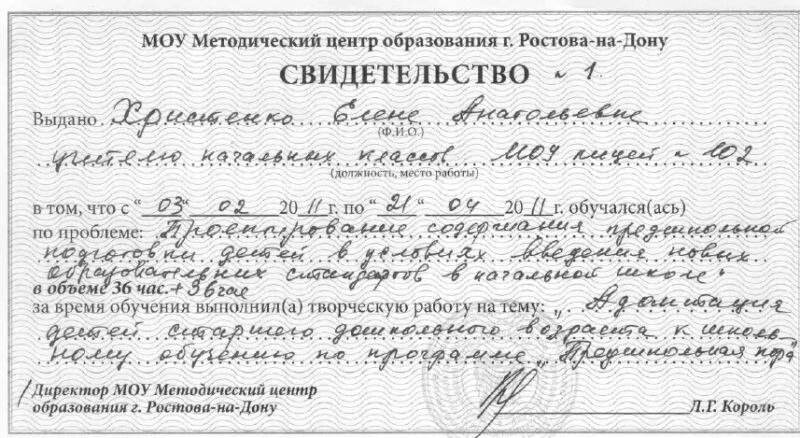 МОУ Методический центр образования г. Ростова-на-Дону
СВИДЕТЕЛЬСТВО № 1
Выдано Христенко Елене Анатольевне
(Ф.И.О.)
учителю начальных классов МОУ лицей № 102
(должность, место работы)
в том, что с “ 03 “ 02 20 11 г. по “ 21 “ 04 20 11 г. обучался(ась)
по проблеме: „Проектирование содержания предшкольной
подготовки детей в условиях введения новых
образовательных стандартов в начальной школе“
в объеме 36 час. + 36 час
за время обучения выполнил(а) творческую работу на тему: „Адаптация
детей старшего дошкольного возраста к школь-
ному обучению по программе „Предшкольная пора“
Директор МОУ Методический центр
образования г. Ростова-на-Дону Л.Г. Король